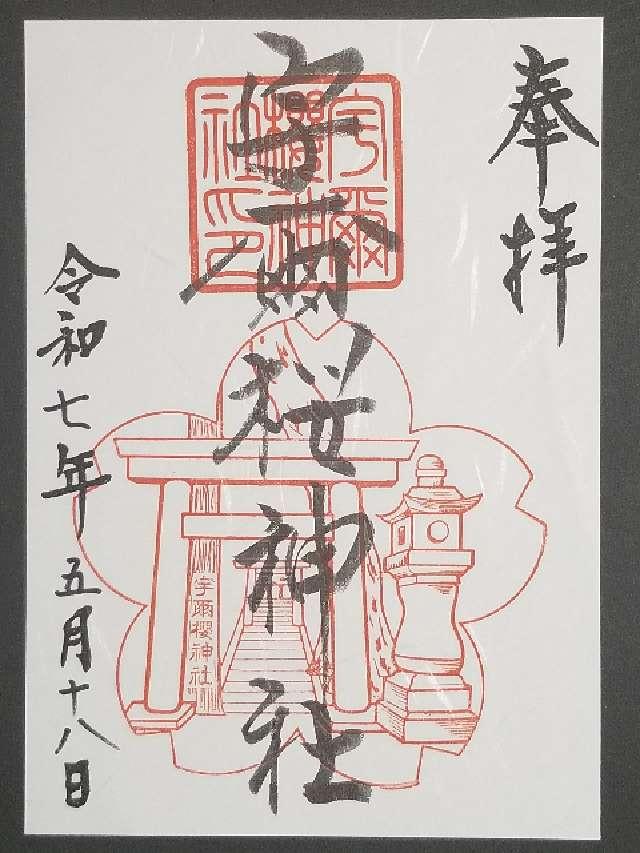 奉拝
宇爾桜神社
宇爾櫻神社印
宇爾櫻神社
令和七年 五月十八日